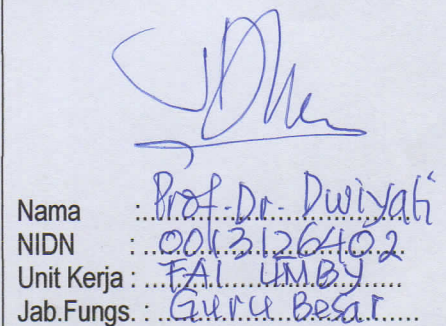 Nama : Prof. Dr. Dwiyati
NIDN : 0013126402
Unit Kerja : FAI UMBY
Jab.Fungs. : Guru Besar